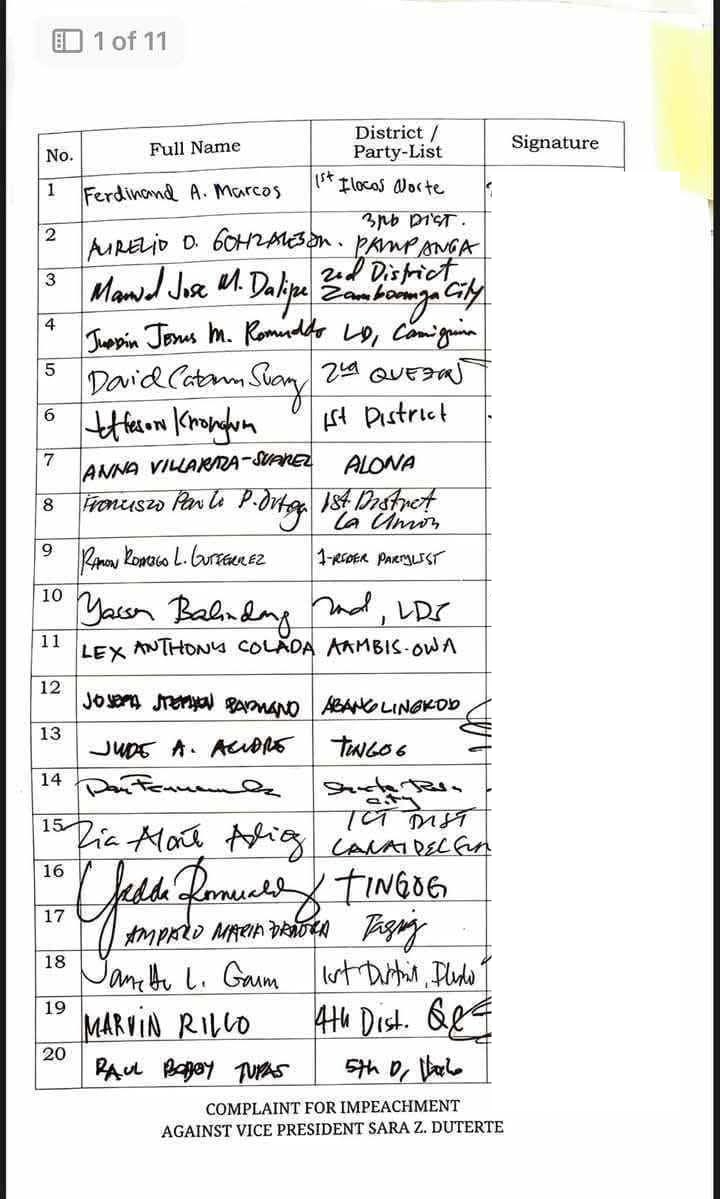 1 of 11
No. Full Name District / Party-List Signature
1 Ferdinand A. Marcos 1st Ilocos Norte
2 AURELIO D. GONZALES JR. 3RD DIST. PAMPANGA
3 Manuel Jose M. Dalipe 2nd District Zamboanga City
4 Jesus M. Romualdo LD, Camiguin
5 David Suarez 2nd QUEZON
6 Jefferson Khonghun 1st District
7 ANNA VILLARAZA-SUAREZ ALONA
8 Francisco Paolo P. Ortega 1st District La Union
9 RAMON RODRIGO L. GUTIERREZ 1-RIDER PARTYLIST
10 Yasser Balindong 2nd, LDS
11 LEX ANTHONY COLADA AAMBIS-OWA
12 JOSEPH STEPHEN PADUANO ABANG LINGKOD
13 JUDE A. ACIDRE TINGOG
14 Dan Fernandez Santa Rosa City
15 Zia Alonto Adiong 1ST DIST LANAO DEL SUR
16 Yedda Romualdez TINGOG
17 AMPARO MARIA ZAMORA Taguig
18 Janette L. Garin 1st District, Iloilo
19 MARVIN RILLO 4th Dist. QC
20 RAUL BOBOY TUPAS 5th D, Iloilo
COMPLAINT FOR IMPEACHMENT
AGAINST VICE PRESIDENT SARA Z. DUTERTE